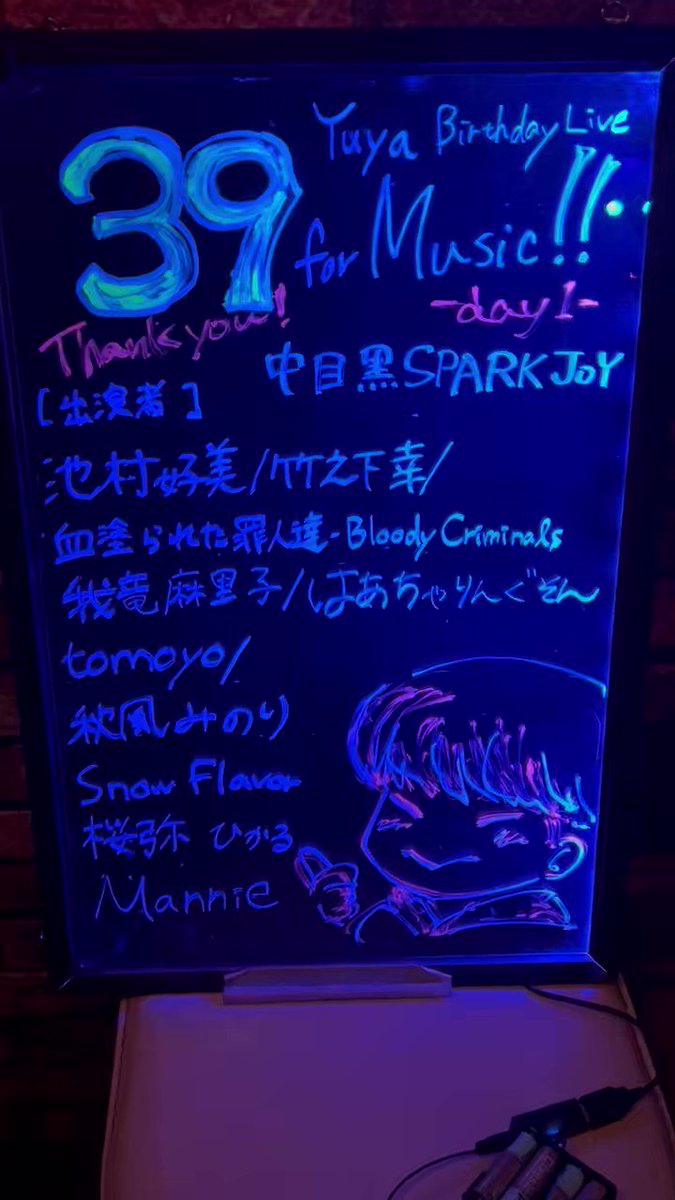 Yuya Birthday Live
39 for Music!!
Thank you!
-day1-
中目黒SPARK JOY
[出演者]
池村好美/竹之下幸/
血塗られた罪人達-Bloody Criminals
我竜麻里子/はあちゃりんぐそん
tomoyo/
秋風みのり
Snow Flavor
桜弥 ひかる
Mannie